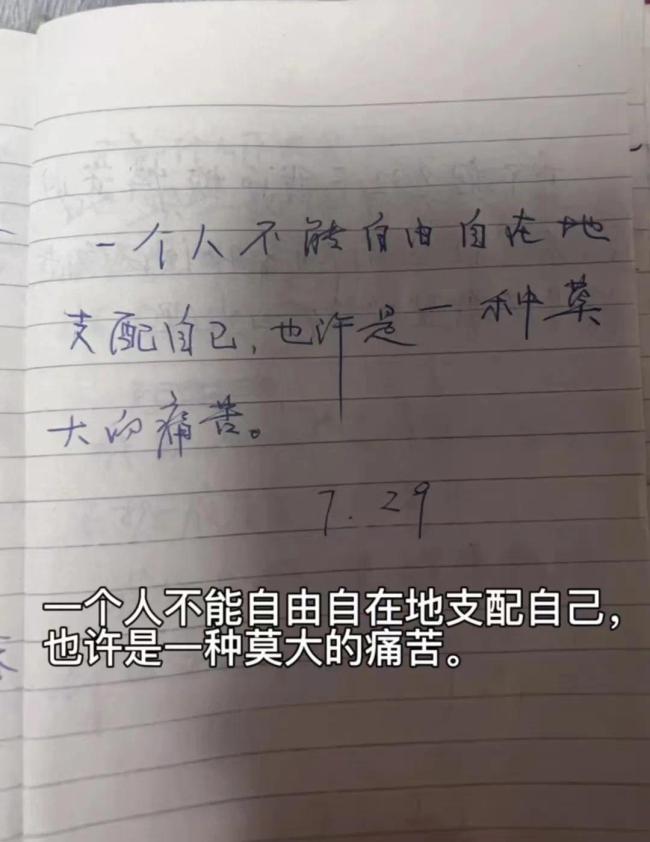 一个人不能自由自在地
支配自己，也许是一种莫
大的痛苦。
7.29
一个人不能自由自在地支配自己，
也许是一种莫大的痛苦。